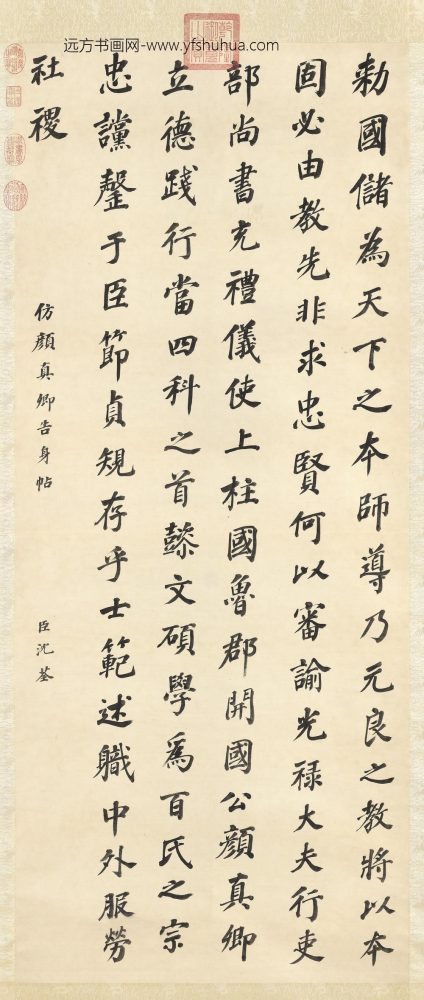 远方书画网-www.yfshuhua.com
勅國儲為天下之本師導乃元良之教將以本
固必由教先非求忠賢何以審諭光禄大夫行吏
部尚書充禮儀使上柱國魯郡開國公顏真卿
立德踐行當四科之首懿文碩學爲百氏之宗
忠讜罄于臣節貞規存乎士範述職中外服勞
社稷
仿顏真卿告身帖
臣沈荃